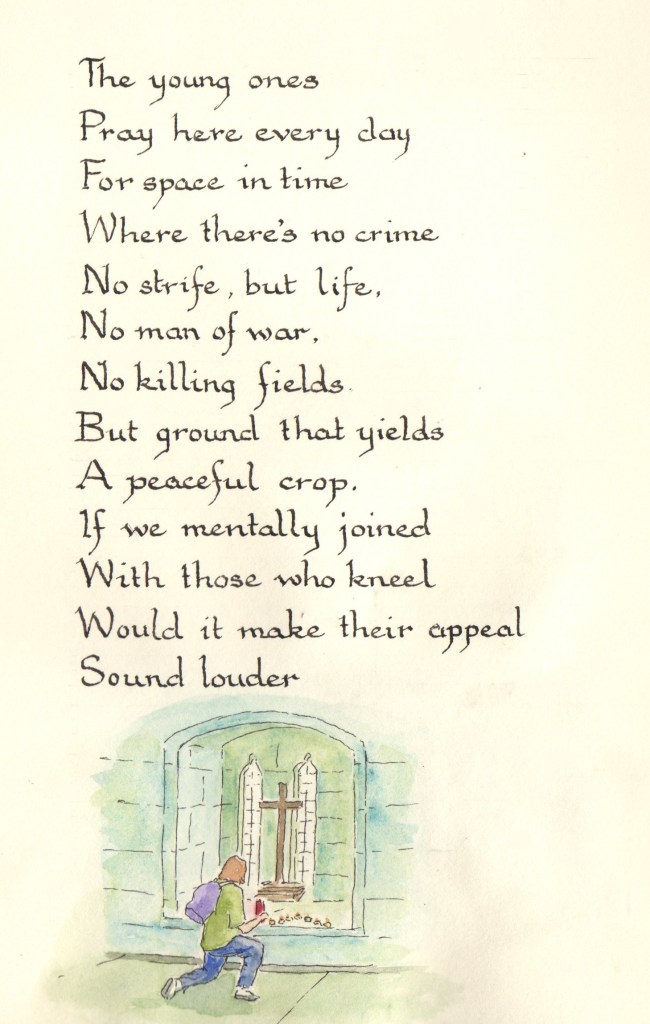 The young ones
Pray here every day
For space in time
Where there's no crime
No strife, but life,
No man of war,
No killing fields.
But ground that yields
A peaceful crop.
If we mentally joined
With those who kneel
Would it make their appeal
Sound louder